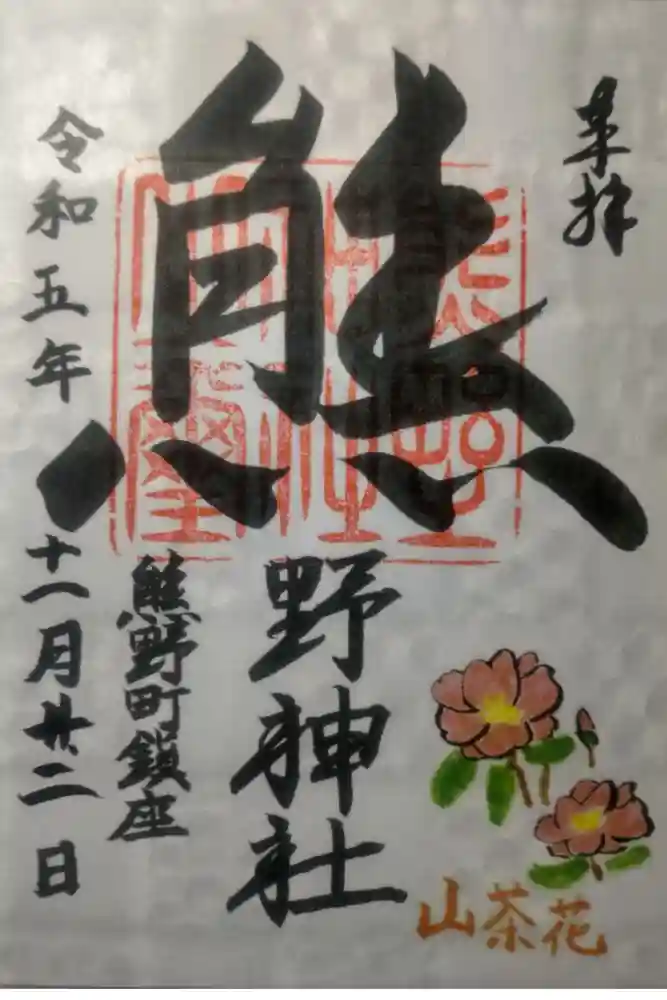 奉拝
熊野神社
熊野町鎮座
令和五年十一月廿二日
山茶花